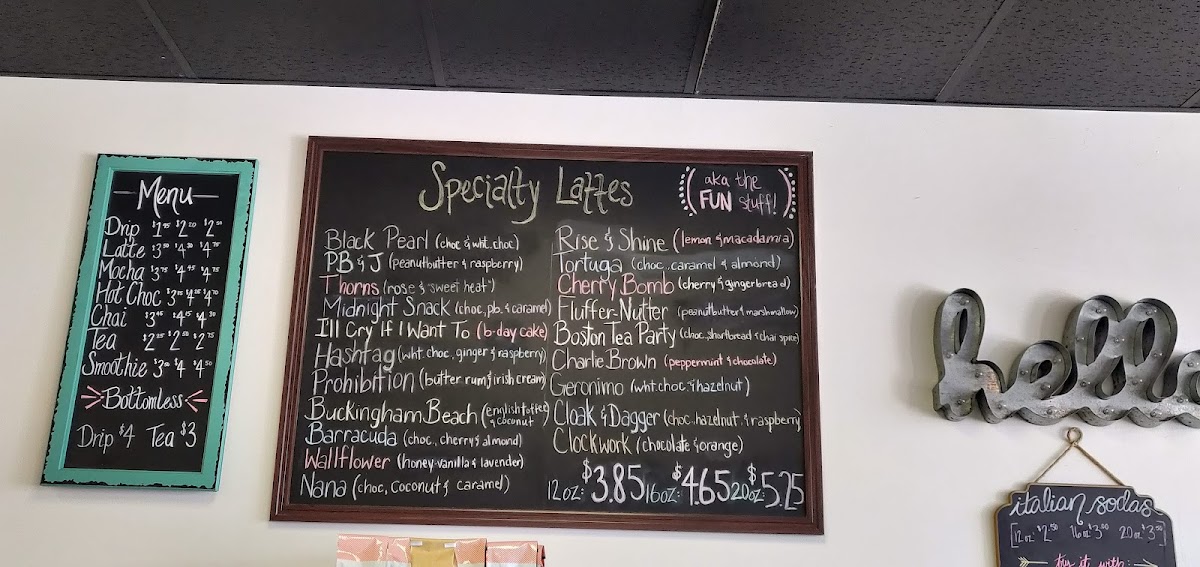 Menu
Drip $1.95 $2.20 $2.50
Latte $3.50 $4.30 $4.75
Mocha $3.75 $4.45 $4.75
Hot Choc $3.25 $4.25 $4.70
Chai $3.45 $4.15 $4.30
Tea $2.25 $2.50 $2.75
Smoothie $3.00 $4 $4.50
Bottomless
Drip $4 Tea $3
Specialty Lattes
(aka the
FUN stuff!)
Black Pearl (choc & wht. choc)
PB & J (peanutbutter & raspberry)
Thorns (rose & "sweet heat")
Midnight Snack (choc, pb. & caramel)
I'll Cry If I Want To (b-day cake)
Hashtag (wht. choc, ginger & raspberry)
Prohibition (butter rum & irish cream)
Buckingham Beach (english toffee & coconut)
Barracuda (choc., cherry & almond)
Wallflower (honey-vanilla & lavender)
Nana (choc, coconut & caramel)
Rise & Shine (lemon & macadamia)
Tortuga (choc., caramel & almond)
Cherry Bomb (cherry & gingerbread)
Fluffer-Nutter (peanutbutter & marshmallow)
Boston Tea Party (choc., shortbread & chai spice)
Charlie Brown (peppermint & chocolate)
Geronimo (wht. choc & hazelnut)
Cloak & Dagger (choc., hazelnut & raspberry)
Clockwork (chocolate & orange)
12oz: $3.85 16oz: $4.65 20oz: $5.25
italian sodas
[12oz $2.50 16oz $3.00 20oz $3.50]
try it with: